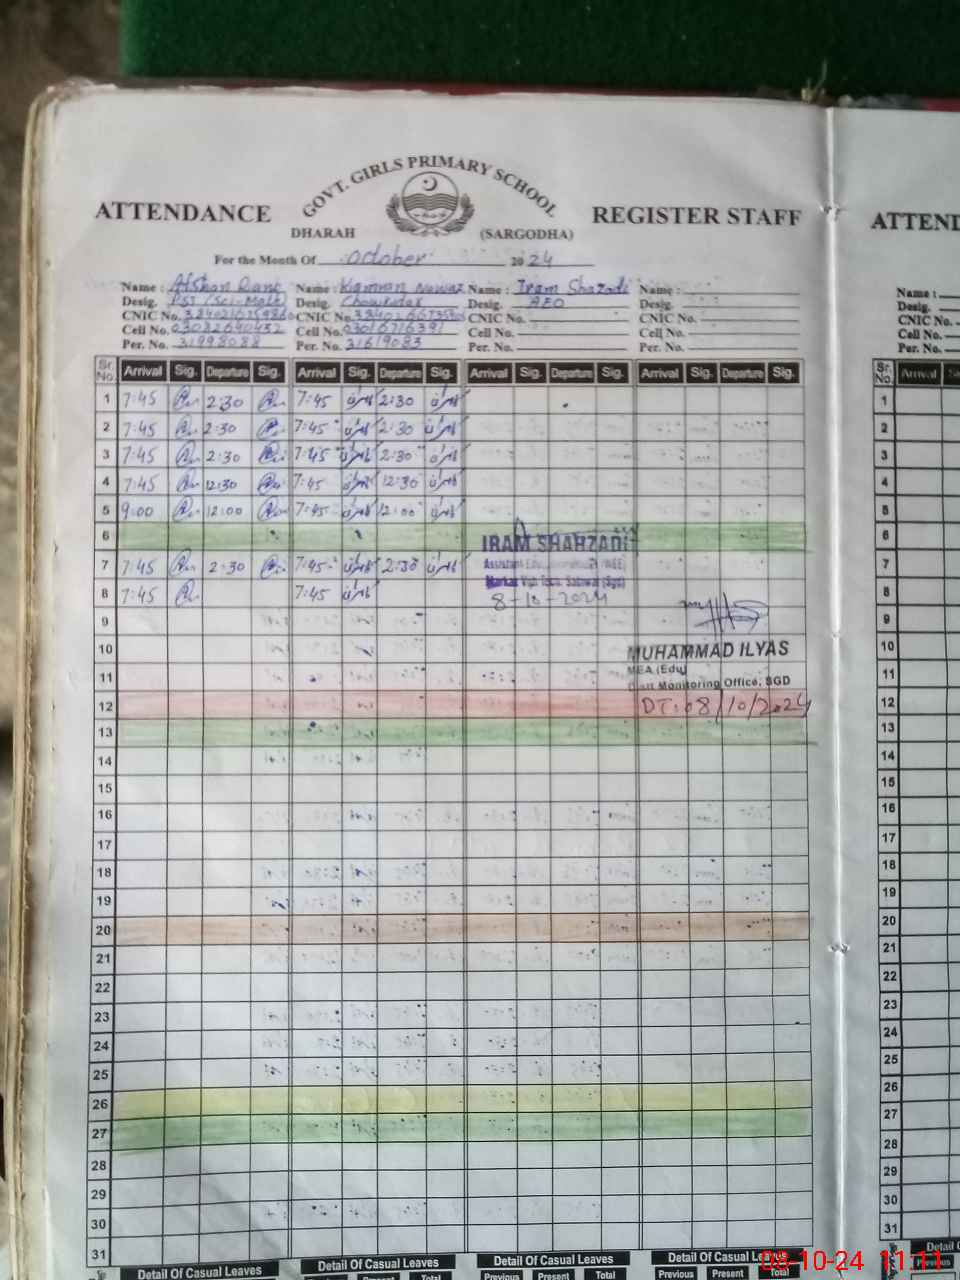 GOVT. GIRLS PRIMARY SCHOOL
ATTENDANCE REGISTER STAFF
DHARAH (SARGODHA)
For the Month Of October 2024
Name : Afshan Name : Kamran Nawaz Name : Iram Shazadi Name :
Desig. PST (Sci-Math) Desig. Chowkidar Desig. AEO Desig.
CNIC No. CNIC No. CNIC No. CNIC No.
Cell No. 03082640452 Cell No. 03016716391 Cell No. Cell No.
Per. No. 31998088 Per. No. 31619083 Per. No. Per. No.
Sr. No. Arrival Sig. Departure Sig. Arrival Sig. Departure Sig. Arrival Sig. Departure Sig. Arrival Sig. Departure Sig.
1 7:45 2:30 7:45 کامران 2:30 کامران
2 7:45 2:30 7:45 کامران 2:30 کامران
3 7:45 2:30 7:45 کامران 2:30 کامران
4 7:45 12:30 7:45 کامران 12:30 کامران
5 9:00 12:00 7:45 کامران 12:00 کامران
6
IRAM SHAHZADI
7 7:45 2:30 7:45 کامران 2:30 کامران
8 7:45 7:45 کامران
8-10-2024
9
10
MUHAMMAD ILYAS
11
MEA (Edu)
Distt Monitoring Office, SGD
12
DT: 08/10/2024
13
14
15
16
17
18
19
20
21
22
23
24
25
26
27
28
29
30
31
Detail Of Casual Leaves Detail Of Casual Leaves Detail Of Casual Leaves Detail Of Casual Leaves
Present Total Previous Present Total Previous Present Total
ATTEND
Name :
Desig.
CNIC No.
Cell No.
Per. No.
Sr. No. Arrival
1
2
3
4
5
6
7
8
9
10
11
12
13
14
15
16
17
18
19
20
21
22
23
24
25
26
27
28
29
30
31
Detail
Previous
08-10-24 11:11